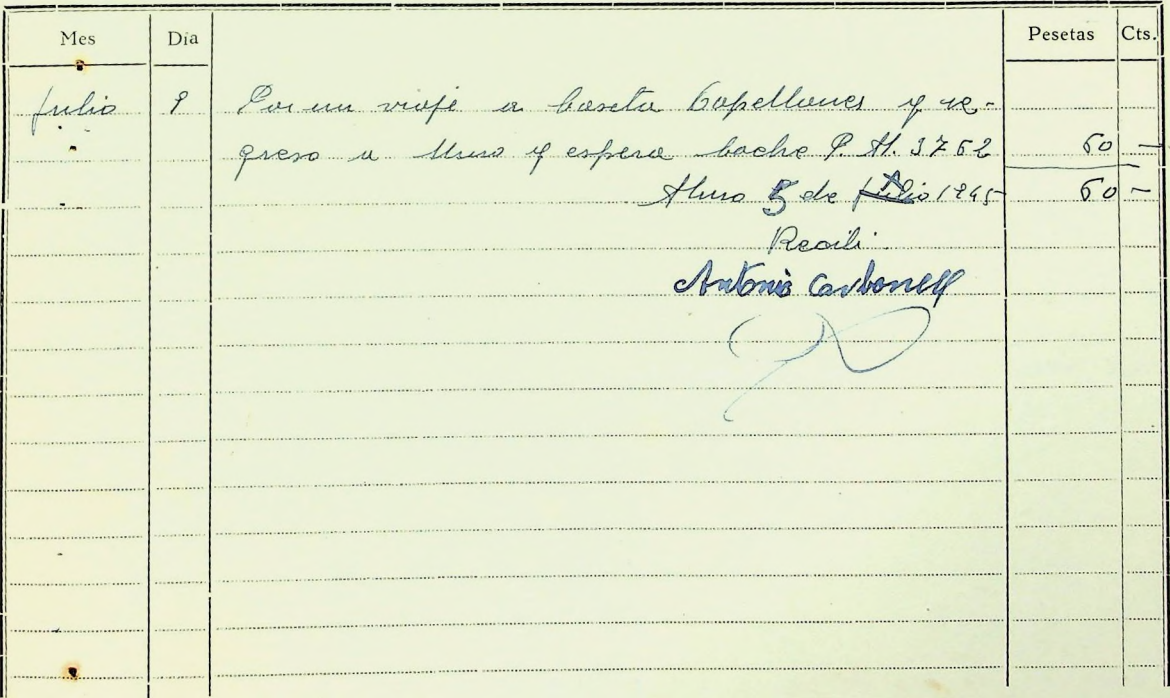 Mes Día Pesetas Cts.
Julio 9 Por un viaje a Caseta Capellanes y re-
greso a Muro y espera coche P. M. 3762 60 —
Muro 5 de 1945 60 —
Recibí
Antonio Carbonell